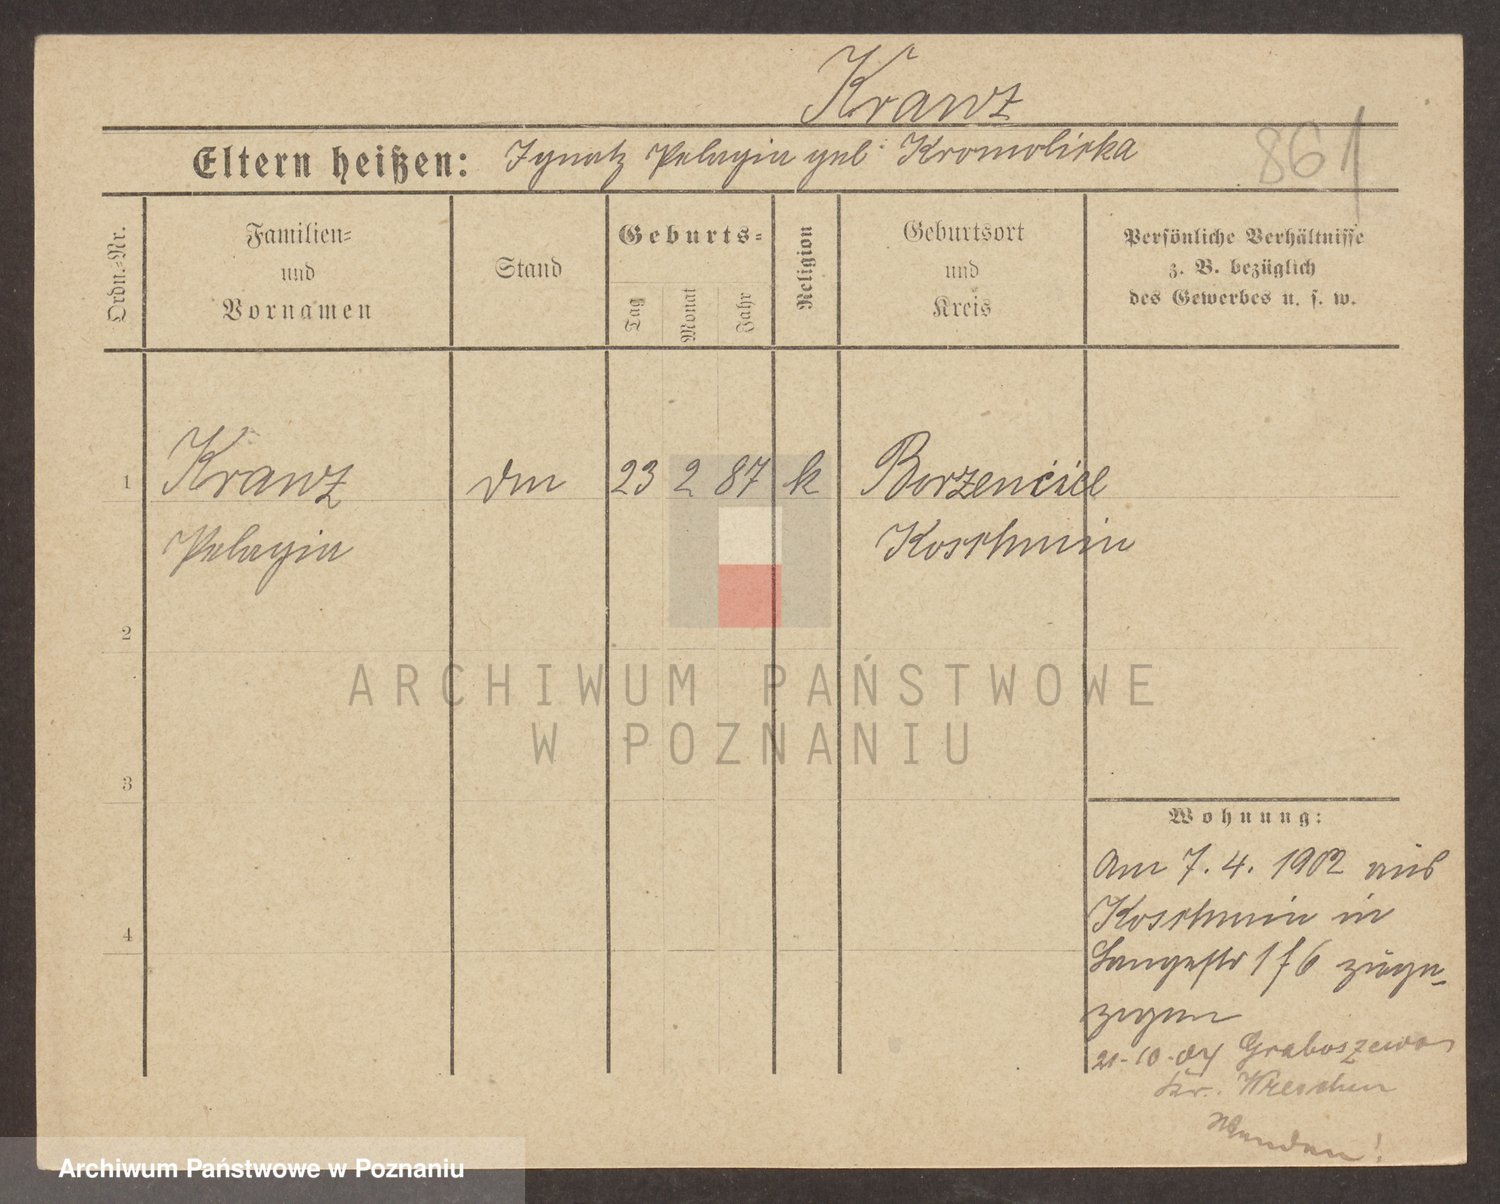 Kranz
Eltern heißen: Ignatz Pelagia geb. Kromolicka
861
Ordn.-Nr.
Familien-
und
Vornamen
Stand
Geburts-
Tag
Monat
Jahr
Religion
Geburtsort
und
Kreis
Persönliche Verhältnisse
z. B. bezüglich
des Gewerbes u. s. w.
1
Kranz
23 2 87 k
Borzencice
Pelagia
Koschmin
2
3
4
Wohnung:
Am 7. 4. 1902 aus
Koschmin in
Langestr 176 zuge-
zogen
21-10-04 Graboszewo
Kr. Wreschen
Wenden!
ARCHIWUM PAŃSTWOWE
W POZNANIU
Archiwum Państwowe w Poznaniu